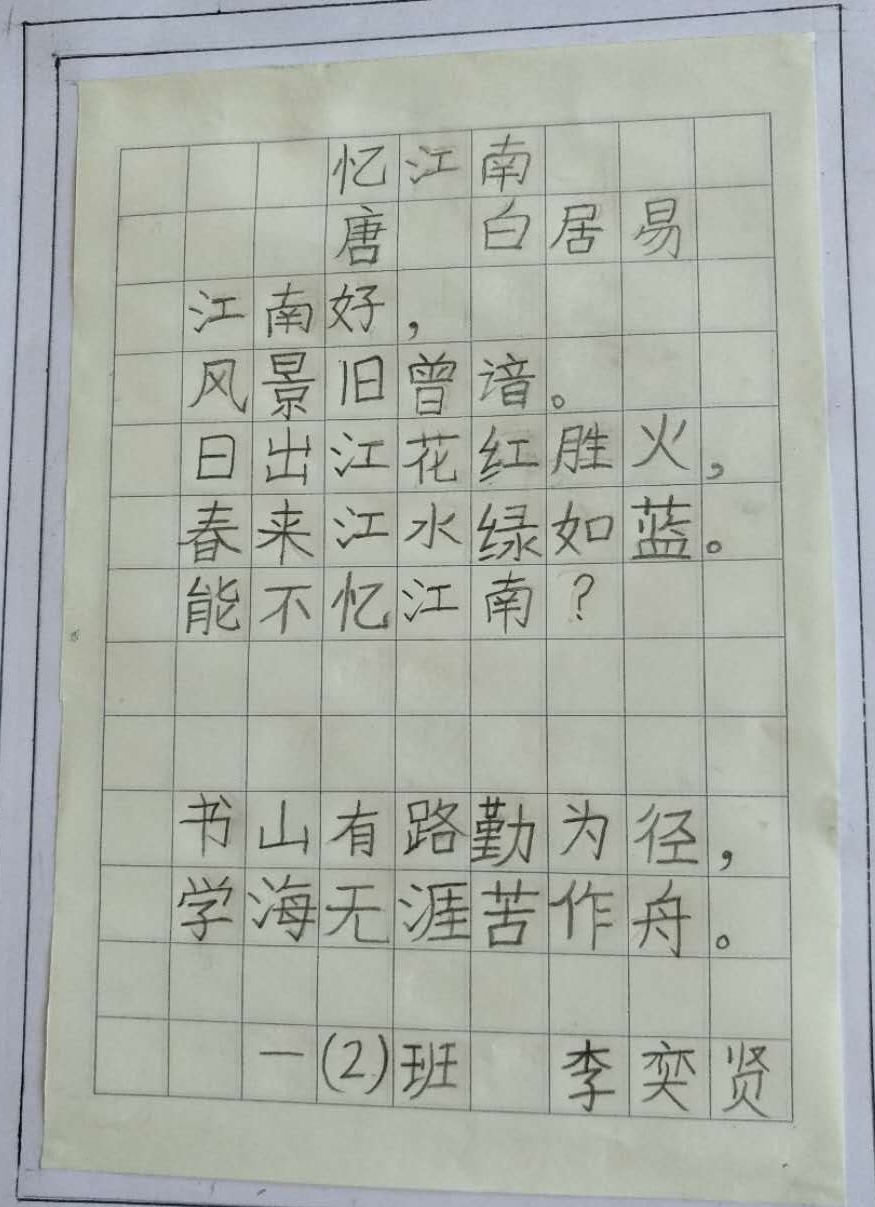 忆江南
唐 白居易
江南好，
风景旧曾谙。
日出江花红胜火，
春来江水绿如蓝。
能不忆江南？
书山有路勤为径，
学海无涯苦作舟。
一(2)班 李奕贤